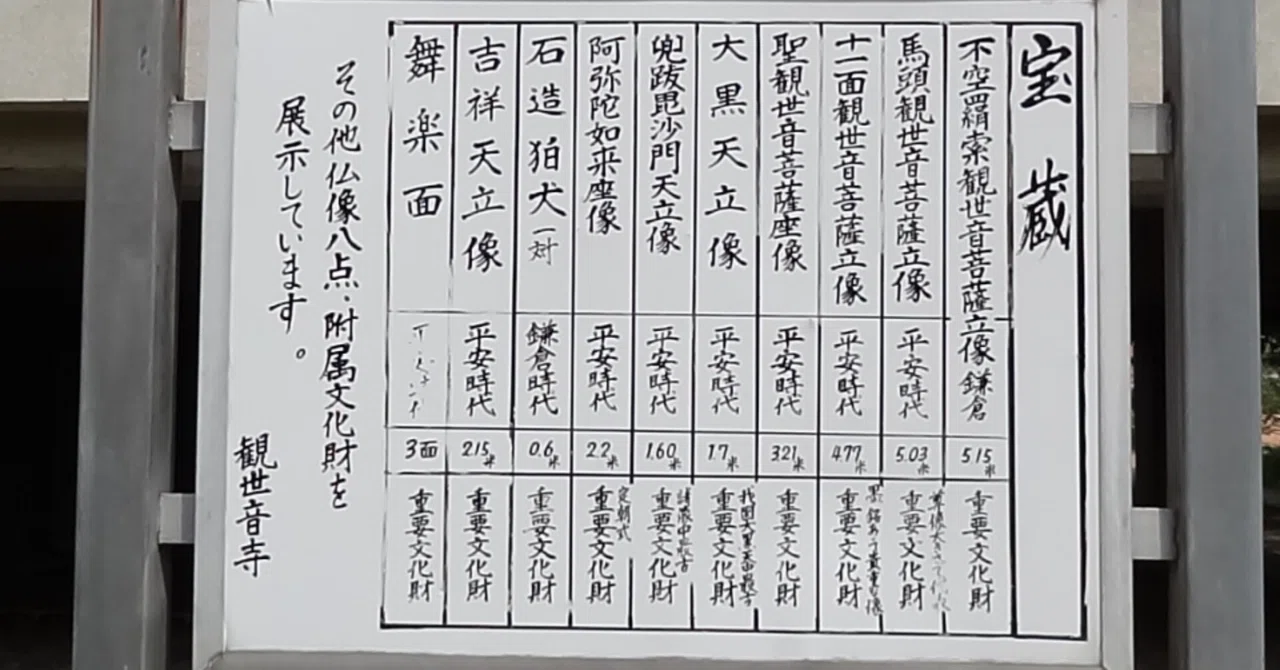 宝蔵
不空羂索観世音菩薩立像 鎌倉 5.15米 重要文化財
馬頭観世音菩薩立像 平安時代 5.03米 重要文化財
十一面観世音菩薩立像 平安時代 4.77米 重要文化財
聖観世音菩薩座像 平安時代 3.21米 重要文化財
大黒天立像 平安時代 1.7米 重要文化財 我国大黒天中最古
兜跋毘沙門天立像 平安時代 1.60米 重要文化財
阿弥陀如来座像 平安時代 2.2米 重要文化財 定朝式
石造狛犬一対 鎌倉時代 0.6米 重要文化財
吉祥天立像 平安時代 2.15米 重要文化財
舞楽面 3面 重要文化財
その他仏像八点、附属文化財を
展示しています。
観世音寺